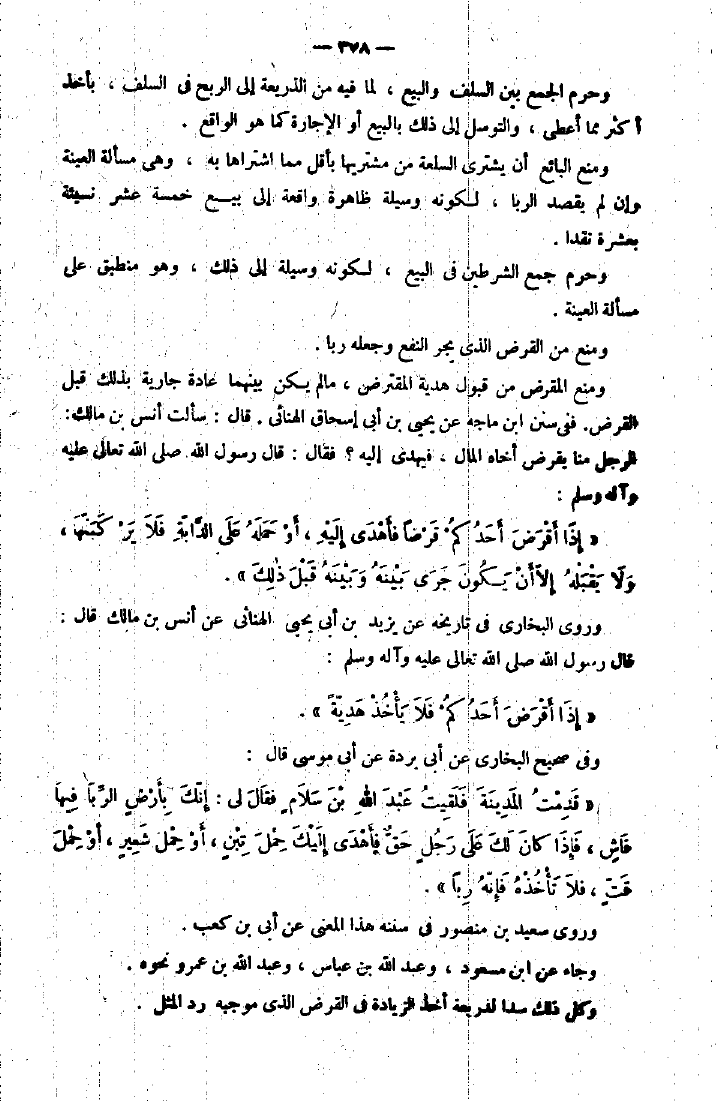 — ٣٧٨ —
وحرم الجمع بين السلف والبيع ، لما فيه من الذريعة إلى الربح فى السلف ، بأخذ
أكثر مما أعطى ، والتوسل إلى ذلك بالبيع أو الإجارة كما هو الواقع .
ومنع البائع أن يشترى السلعة من مشتريها بأقل مما اشتراها به ، وهى مسألة العينة
وإن لم يقصد الربا ، لكونه وسيلة ظاهرة واقعة إلى بيع خمسة عشر نسيئة
بعشرة نقدا .
وحرم جمع الشرطين فى البيع ، لكونه وسيلة إلى ذلك ، وهو منطبق على
مسألة العينة .
ومنع من القرض الذى يجر النفع وجعله ربا .
ومنع المقرض من قبول هدية المقترض ، مالم يكن بينهما عادة جارية بذلك قبل
القرض. ففى سنن ابن ماجه عن يحيى بن أبى إسحاق الهنائى . قال : سألت أنس بن مالك:
الرجل منا يقرض أخاه المال ، فيهدى إليه ؟ فقال : قال رسول الله صلى الله تعالى عليه
وآله وسلم :
« إِذَا أَقْرَضَ أَحَدُكُمْ قَرْضاً فَأَهْدَى إِلَيْهِ ، أَوْ حَمَلَهُ عَلَى الدَّابَّةِ فَلَا يَرْكَبَنَّهَا ،
وَلَا يَقْبَلْهُ إِلاَّ أَنْ يَكُونَ جَرَى بَيْنَهُ وَبَيْنَهُ قَبْلَ ذٰلِكَ » .
وروى البخارى فى تاريخه عن يزيد بن أبى يحيى الهنائى عن أنس بن مالك قال :
قال رسول الله صلى الله تعالى عليه وآله وسلم :
« إِذَا أَقْرَضَ أَحَدُكُمْ فَلَا يَأْخُذْ هَدِيَّةً » .
وفى صحيح البخارى عن أبى بردة عن أبى موسى قال :
« قَدِمْتُ المَدِينَةَ فَلَقِيتُ عَبْدَ اللهِ بْنَ سَلَامٍ فقَالَ لى : إِنَّكَ بِأَرْضٍ الرِّبَا فِيهَا
فَاشٍ ، فَإِذَا كانَ لَكَ عَلَى رَجُلٍ حَقٌّ فَأَهْدَى إِلَيْكَ حِمْلَ تِبْنٍ ، أَوْ حِمْلَ شَعِيرٍ ، أَوْ حِمْلَ
قَتٍّ ، فلاَ تَأْخُذْهُ فَإِنَّهُ رِباً » .
وروى سعيد بن منصور فى سننه هذا المعنى عن أبى بن كعب .
وجاء عن ابن مسعود ، وعبد الله بن عباس ، وعبد الله بن عمرو نحوه .
وكل ذلك سدا لذريعة أخذ الزيادة فى القرض الذى موجبه رد المثل .